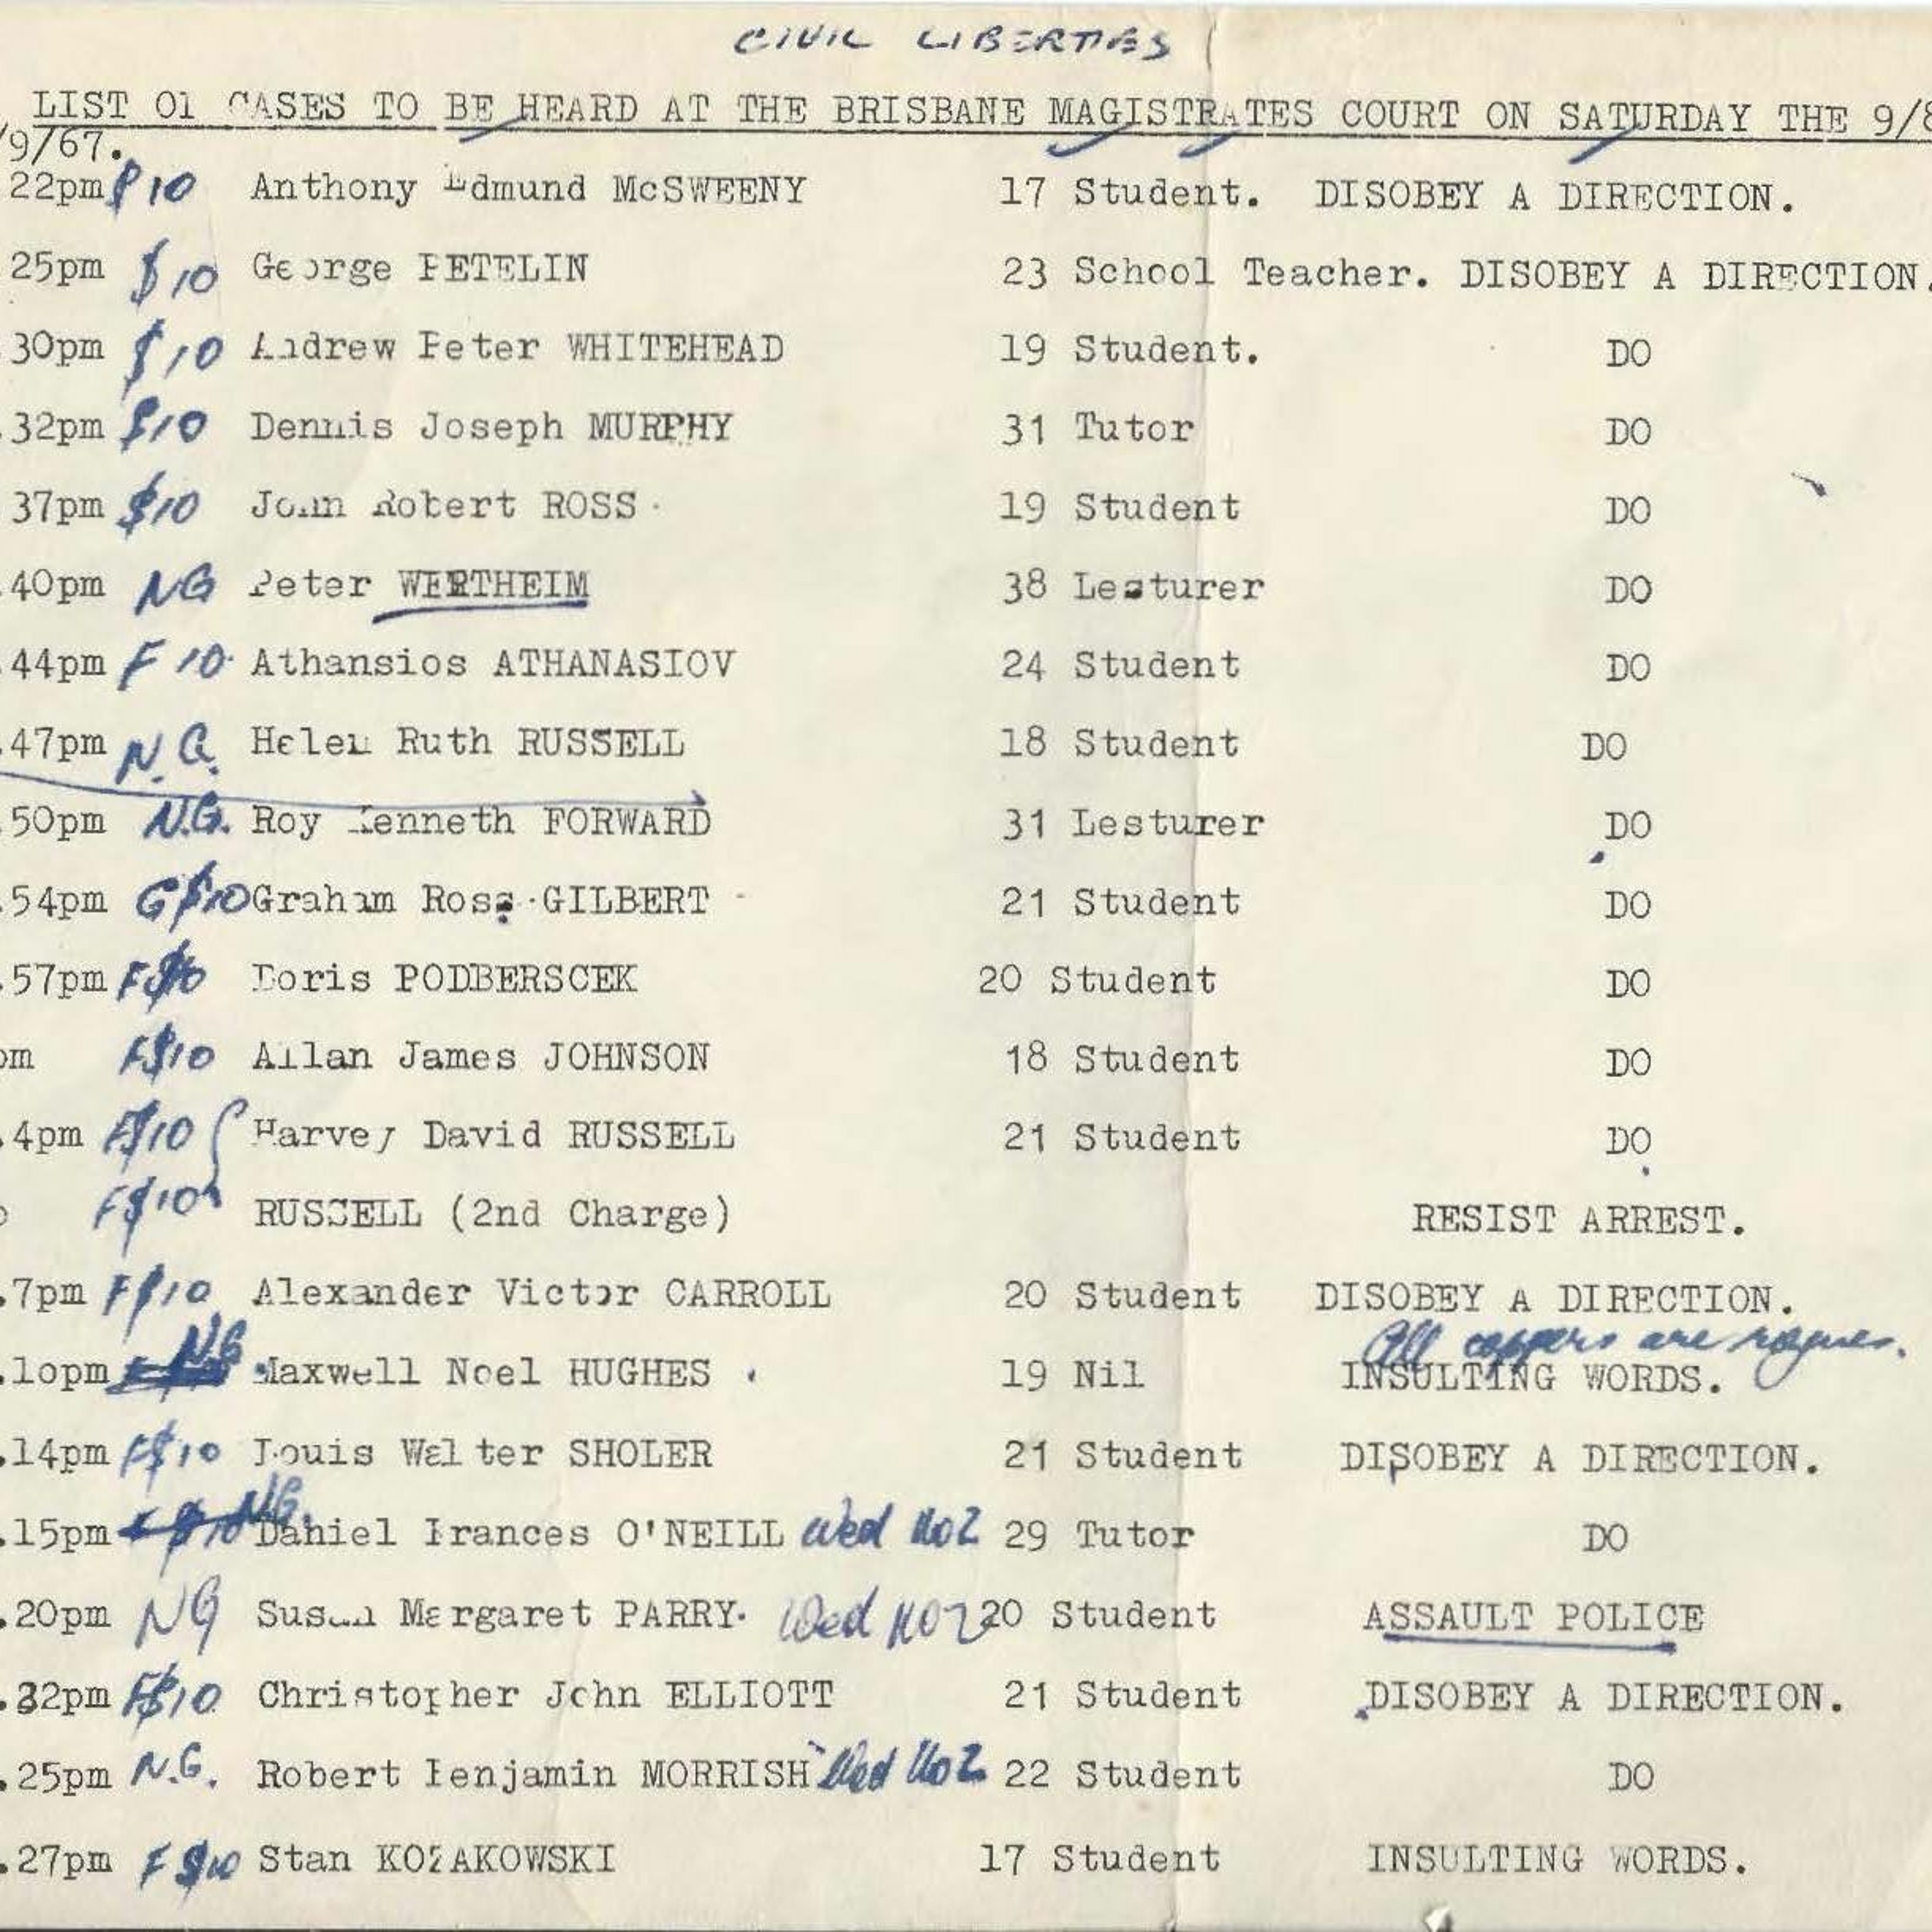 CIVIL LIBERTIES
LIST Ol CASES TO BE HEARD AT THE BRISBANE MAGISTRATES COURT ON SATURDAY THE 9/8
/9/67.
22pm $10 Anthony Edmund McSWEENY 17 Student. DISOBEY A DIRECTION.
25pm $10 George PETELIN 23 School Teacher. DISOBEY A DIRECTION.
30pm $10 Andrew Peter WHITEHEAD 19 Student. DO
.32pm $10 Dennis Joseph MURPHY 31 Tutor DO
37pm $10 John Robert ROSS 19 Student DO
.40pm NG Peter WERTHEIM 38 Lesturer DO
.44pm F 10 Athansios ATHANASIOV 24 Student DO
.47pm N.G. Helen Ruth RUSSELL 18 Student DO
.50pm N.G. Roy Kenneth FORWARD 31 Lesturer DO
.54pm G$10 Graham Ross GILBERT 21 Student DO
.57pm F$10 Doris PODBERSCEK 20 Student DO
pm F$10 Allan James JOHNSON 18 Student DO
.4pm F$10 Harvey David RUSSELL 21 Student DO
F$10 RUSSELL (2nd Charge) RESIST ARREST.
.7pm F$10 Alexander Victor CARROLL 20 Student DISOBEY A DIRECTION.
NG All coppers are rogues.
.lopm Maxwell Noel HUGHES 19 Nil INSULTING WORDS.
.14pm F$10 Louis Walter SHOLER 21 Student DISOBEY A DIRECTION.
NG.
.15pm F $10 Daniel Frances O'NEILL Wed 1102 29 Tutor DO
.20pm NG Susan Margaret PARRY. Wed 1102 20 Student ASSAULT POLICE
.32pm F$10 Christopher John ELLIOTT 21 Student DISOBEY A DIRECTION.
.25pm N.G. Robert Benjamin MORRISH Wed 1102 22 Student DO
.27pm F $10 Stan KOZAKOWSKI 17 Student INSULTING WORDS.